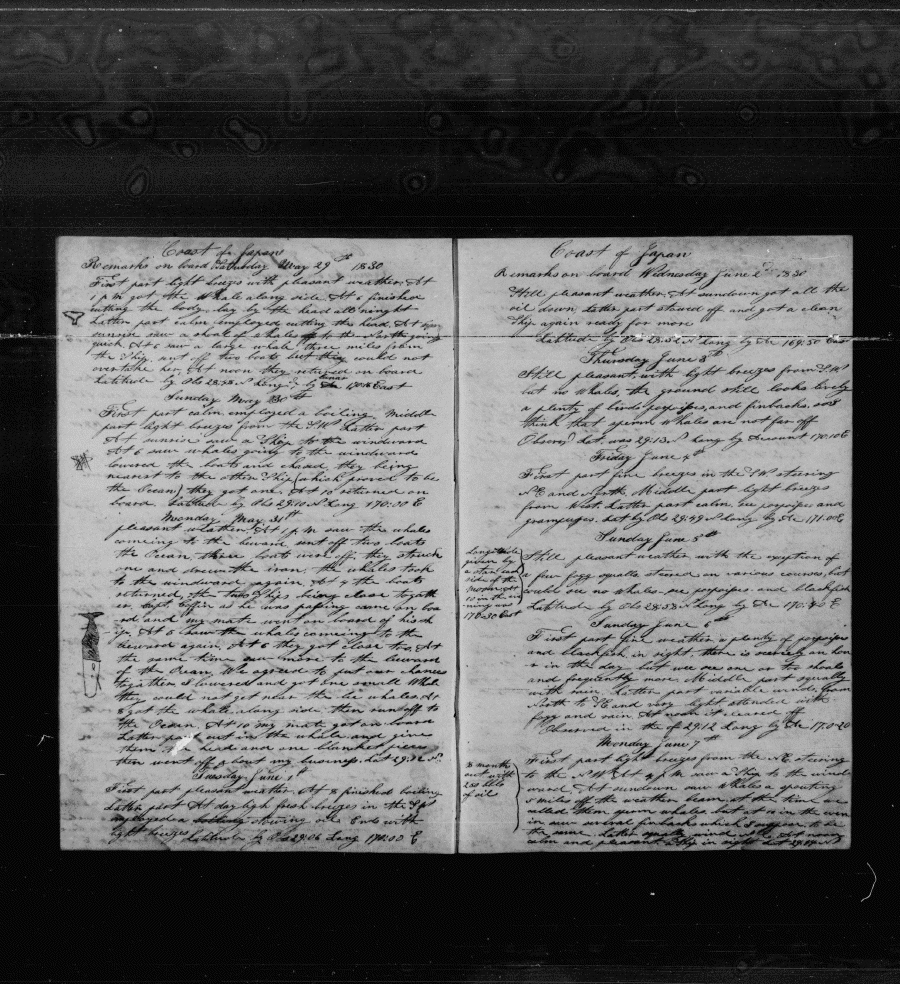 Coast of Japan
Remarks on board Saturday May 29th 1830
First part light breezes with pleasant weather. At
1 p m got the Whale along side At 6 finished
cutting the body. lay by the head all night
Latter part calm employed cutting the head. At
sunrise saw a shoal of whales off to the North going
quick At 6 saw a large whale three miles from
the Ship, put off two boats but they could not
overtake her. At noon they returned on board
Latitude by Obs 28.58 N Long by East
Sunday May 30th
First part calm employed a boiling Middle
part light breezes from the SW Latter part
At sunrise saw a Ship to the windward
At 6 saw whales going to the windward
lowered the boats and chased, they being
nearest to the other Ship (which proved to be
the Ocean) they got one. At 10 returned on
board Latitude by Obs 29.10 N Long 170.30 E
Monday May 31st
pleasant weather. At 1 p m saw the whales
comeing to the leward put off two boats
the Ocean three boats were off, they struck
one and drew the iron. the whales took
to the windward again. At 4 the boats
returned, the two Ships being close togath
er. Capt. Coffin as he was passing came on boa
rd and my mate went on board of his sh
ip. At 5 saw the whales comeing to the
leeward again, At 6 they got close too. At
the same time saw more to the leward
of the Ocean. We agreed to put our chances
together I lowered and got one small Whale
they could not get near the leé whales. At
8 got the whale along side then run off to
the Ocean. At 10 my mate got on board
Latter part cut in the whale and give
them the head and one blanket piece
then went off about my business. Lat 29.32 N.
Tuesday June 1st
First part pleasant weather At 8 finished boiling
Latter part At day ligh fresh breezes in the SW
employed a stowing oil Ends with
light breezes Latitude by Obs 29.06 Long 170.00 E
Coast of Japan
Remarks on board Wednesday June 2d 1830
Still pleasant weather. At sundown got all the
oil down Latter part stowed off and got a clean
Ship again ready for more
Latitude by Obs 28.52 N Long by Ac 169.50 East
Thursday June 3d
Still pleasant, with light breezes from SW
but no Whales, the ground still looks lively
a plenty of birds porpoises, and finbacks.
think that sperm Whales are not far off
Observd Lat. was 29.13 N Long by Account 170.10 E
Friday June 4th
First part fine breezes in the SW steering
NE and North. Middle part light breezes
from West. Latter part calm, see porpoises and
grampuses. Lat by Obs 29.49 N Long by Ac 171.00 E
Sunday June 5th
longitude
given by
a star east
side of the
moon. At
10 in the eve
ning was
170.30 East
Still pleasant weather with the exeption of
a few fogg squalls steered on various courses, but
could see no whales, see porpoises and blackfish
Latitude by Obs 28.58 N Long by Ac 170.40 E
Sunday June 6th
First part fine weather a plenty of porpoises
and blackfish in sight. there is scercely an hou
r in the day but wee see one or two shoals
and frequently more. Middle part squally
with rain. Latter part variable winds from
North to NE and very light attended with
fogg and rain. At noon it cleared off
Observed in the of 29.12 Long by Ac 170.20
Monday June 7th
8 month
out with
250 bbls
of oil
First part light breezes from the NE steering
to the NW At 4 p m saw a Ship to the wind
ward. At sundown saw Whales a spouting
5 miles off the weather beam, at the time we
called them sperm whales. but at 10 in the even
in saw several finbacks which I suppose to be
the same. Latter squally wind At noon
calm and pleasant a Ship in sight Lat N